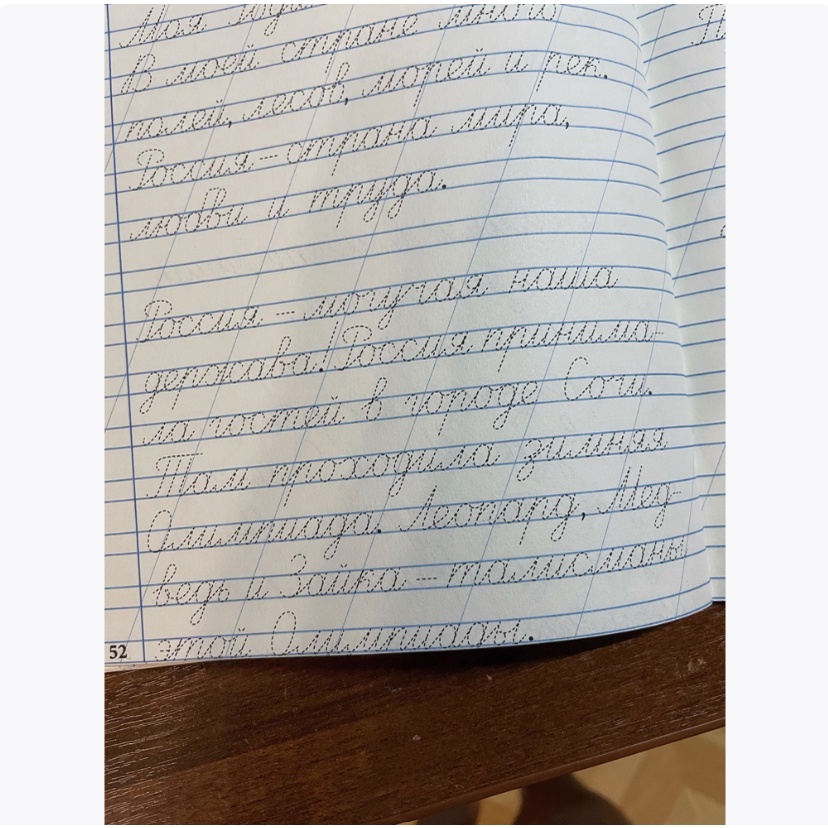 Моя
В моей стране много
полей, лесов, морей и рек.
Россия – страна мира,
любви и труда.
Россия – могучая наша
держава! Россия принима-
ла гостей в городе Сочи.
Там проходила зимняя
Олимпиада. Леопард, Мед-
ведь и Зайка – талисманы
этой Олимпиады.
52